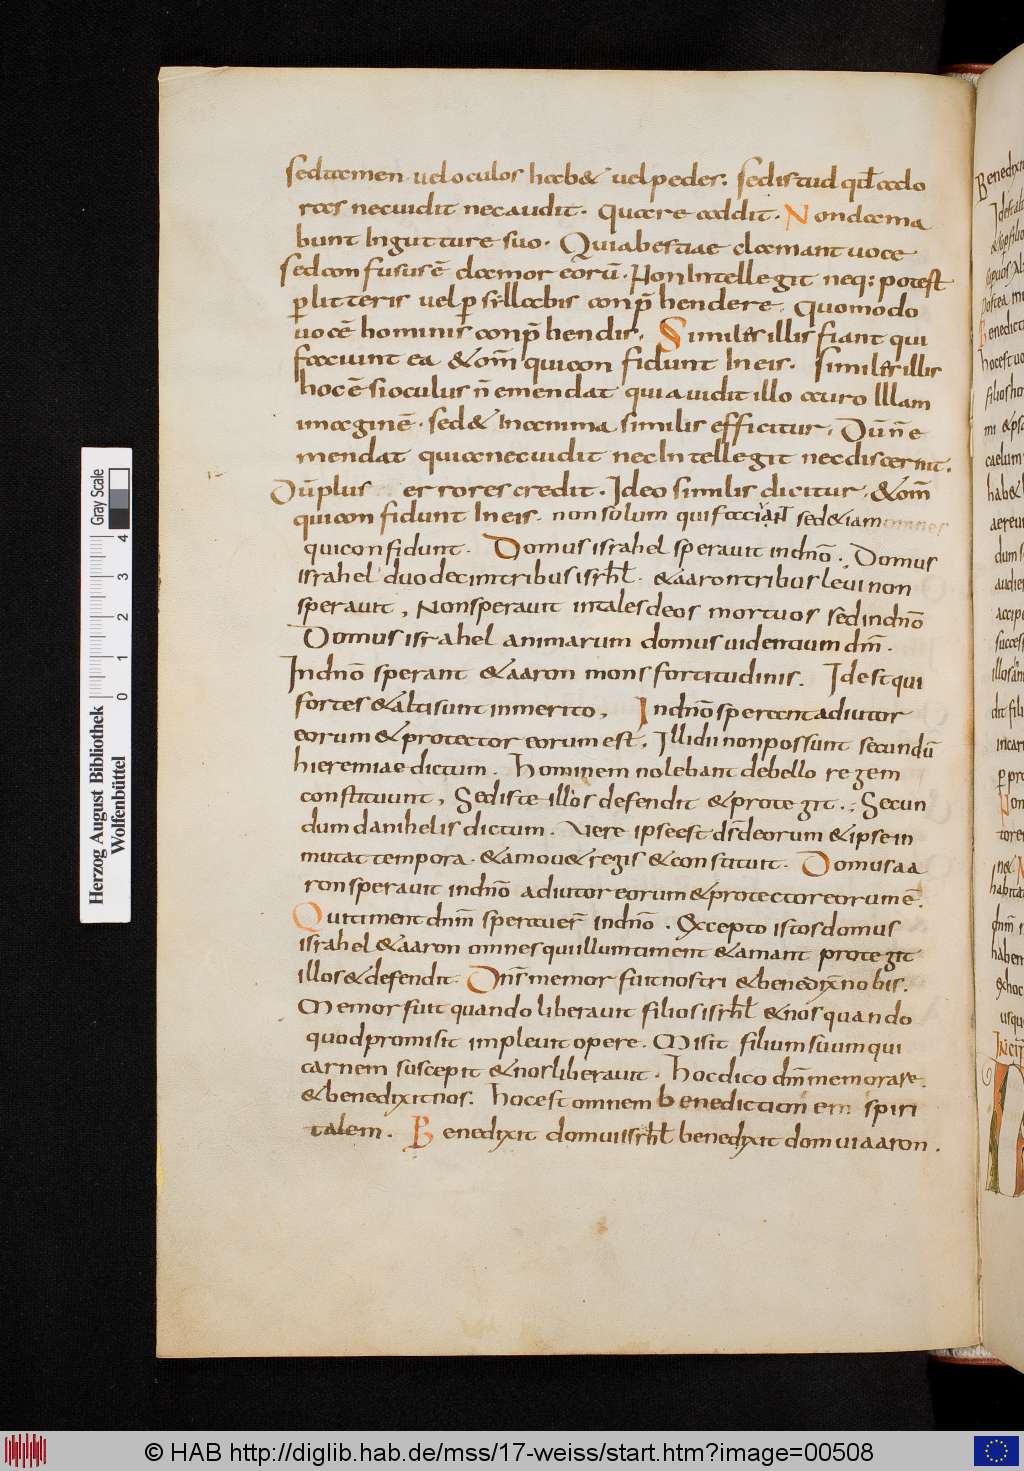 sed tamen vel oculos hab& vel pedes. sed istud qđ ado
ras nec vidit nec audit. Quare addit. Non clama
bunt In gutture suo. Qui a bestiae clamant voce
sed confusus ē clamor eorū. Non Intellegit neq: potest
ꝑ litteris vel ꝑ syllabis conp̄hendere. Quomodo
vocē hominis conp̄hendis. Similes illis fiant qui
faciunt ea & om̄s qui confidunt In eis. Similes illis
hoc ē si oculus n̄ emendat qui a vidit illo auro Illam
imaginē. sed & In anima similis efficitur. Dū n̄ e
mendat quia nec vidit nec Intellegit nec discernit.
Dū plus errores credit. Ideo similis dicitur. & om̄s
qui confidunt In eis. non solum qui faciant sed & iam omnes
qui confidunt. Domus israhel speravit in dn̄o. Domus
israhel duodecim tribus isrhl̄. & aaron tribus levi non
speravit, Non speravit in tales deos mortuos sed in dn̄o
Domus israhel animarum domus videntium dm̄.
In dn̄o sperant & aaron mons fortitudinis. Id est qui
fortes & alti sunt in merito, In dn̄o sperant adiutor
eorum & protector eorum est. Illi dii non possunt secundū
hieremiae dictum. Hominem nolebant de bello regem
constituunt, Sed iste illos defendit & protegit. Secun
dum danihelis dictum. Vere ipse est ds̄ deorum & ipse in
mutat tempora. & amov& regis & constituit. Domus aa
ron speravit in dn̄o adiutor eorum & protector eorum ē.
Qui timent dnm̄ speraver̄ in dn̄o. Excepto istos domus
israhel & aaron omnes qui illum timent & amant protegit
illos & defendit. Dn̄s memor fuit nostri & benedix̄ nobis.
Memor fuit quando liberavit filios isrhl̄ & nos quando
quod promisit implevit opere. Misit filium suum qui
carnem suscepit & nos liberavit. Hoc dico dm̄ memorare.
& benedixit nos. Hoc est omnem benedictionem spiri
talem. Benedixit domui isrhl̄ benedixit domui aaron.
Herzog August Bibliothek
Wolfenbüttel
Gray Scale
0 1 2 3 4
© HAB http://diglib.hab.de/mss/17-weiss/start.htm?image=00508